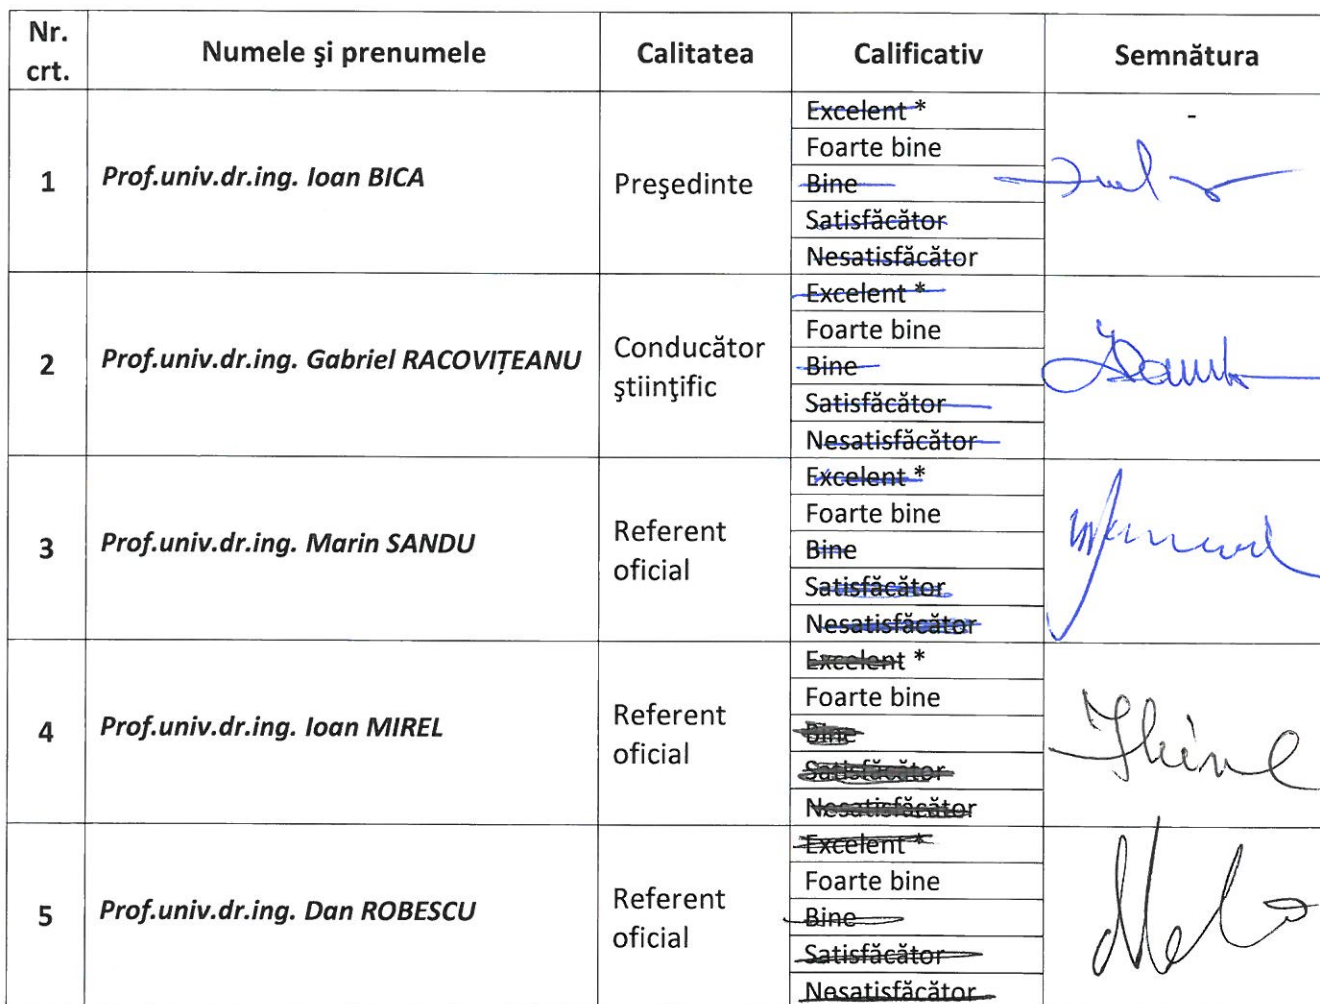 Nr. crt. Numele şi prenumele Calitatea Calificativ Semnătura
1 Prof.univ.dr.ing. Ioan BICA Preşedinte
Excelent *
Foarte bine
Bine
Satisfăcător
Nesatisfăcător
-
2 Prof.univ.dr.ing. Gabriel RACOVIȚEANU Conducător
ştiinţific
Excelent *
Foarte bine
Bine
Satisfăcător
Nesatisfăcător
3 Prof.univ.dr.ing. Marin SANDU Referent
oficial
Excelent *
Foarte bine
Bine
Satisfăcător
Nesatisfăcător
4 Prof.univ.dr.ing. Ioan MIREL Referent
oficial
Excelent *
Foarte bine
Bine
Satisfăcător
Nesatisfăcător
5 Prof.univ.dr.ing. Dan ROBESCU Referent
oficial
Excelent *
Foarte bine
Bine
Satisfăcător
Nesatisfăcător